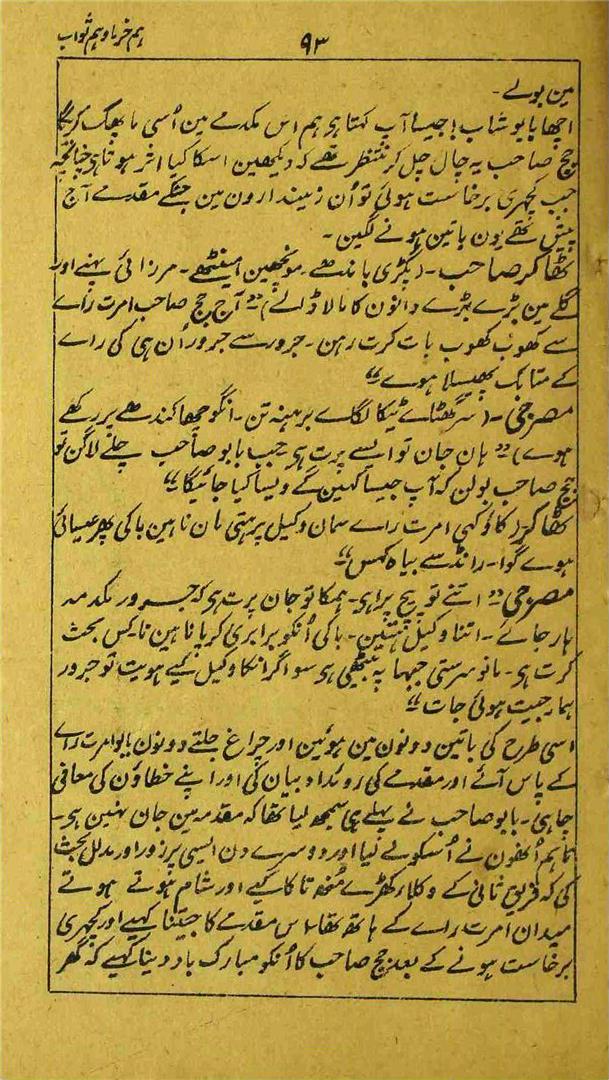 ہم خرما و ہم ثواب
۹۳
مین بولے۔
اچھا بابو شاب! جیسا آپ کہتا ہی ہم اس مکدمے مین اُسی ماپھک کریگا
جج صاحب یہ چال چل کر منتظر تھے کہ دیکھین اسکا کیا اثر ہوتا ہی چنانچہ
جب کچہری برخاست ہوئی تو اُن زمیندارون مین جنکے مقدمے آج
پیش تھے یون باتین ہونے لگین۔
ٹھاکر صاحب۔ (پگڑی باندھے۔ مونچھین اینٹھے۔ مرزائی پہنے اور
گلے مین بڑے بڑے دانون کا مالا ڈالے) "آج جج صاحب امرت راے
سے کھوب کھوب بات کرت رہن۔ جرور سے جرور اُن ہی کی راے
کے متابک پھیسلا ہوے"
مصر جی۔ (سر گھٹاے ٹیکا لگاے برہنہ تن۔ انگوچھا کندھے پر رکھے
ہوے) "ہان جان تو ایسے پرت ہی جب بابو صاحب چلنے لاگن تو
جج صاحب بولن کہ آپ جیسا کہین گے ویسا کیا جائیگا"
ٹھاکر۔ (کاؤ کہی امرت راے سمان وکیل پرتھی مان ناہین باکی پھر عیسائی
ہوے گوا۔ رانڈ سے بیاہ کہس"
مصر جی "اتنے تو پیچ پرا ہی۔ ہمکا تو جان پرت ہی کہ جرور مکدمہ
ہار جائے۔ اتنا وکیل ہتین۔ باکی اُنکو برابری کر پاناہین ناکس بحث
کرت ہی۔ مانو سرستی جبھا پہ بیٹھی ہی سو اگر انکا وکیل کیے ہویت تو جرور
ہمار جیت ہوئی جات"
اسی طرح کی باتین دونون مین ہوئین اور چراغ جلتے دونون بابو امرت راے
کے پاس آئے اور مقدمے کی روئداد بیان کی اور اپنے خطاؤن کی معافی
چاہی۔ بابو صاحب نے پہلے ہی سمجھ لیا تھا کہ مقدمہ مین جان نہین ہی۔
تاہم اُنھون نے اُسکو لے لیا اور دوسرے دن ایسی پرزور اور مدلل بحث
کی کہ فریق ثانی کے وکلاء کھڑے مُنھ تاکا کیے اور شام ہوتے ہوتے
میدان امرت راے کے ہاتھ تھا۔ اس مقدمے کا جیتنا کہیے اور کچہری
برخاست ہونے کے بعد جج صاحب کا اُنکو مبارک باد دینا کہیے کہ گھر